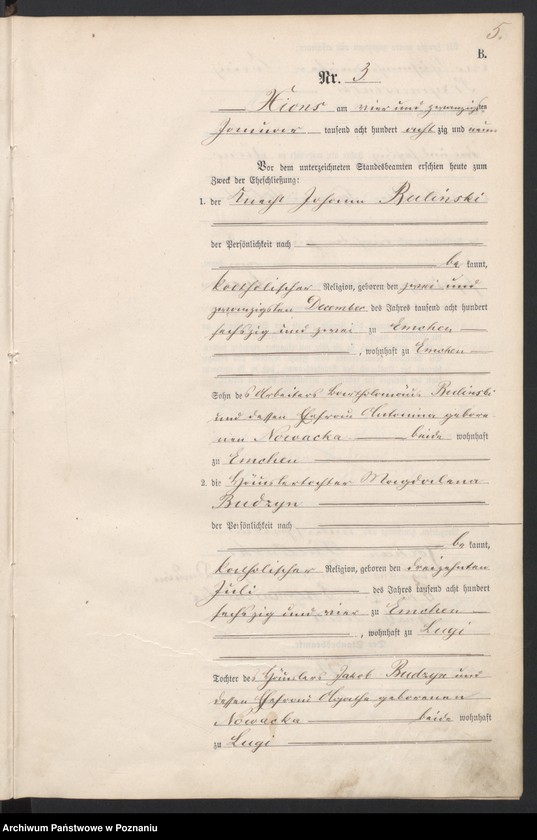 5.
B.
Nr. 3
Xions am vier und zwanzigsten
Januar tausend acht hundert acht zig und neun
Vor dem unterzeichneten Standesbeamten erschien heute zum
Zweck der Eheschließung:
1. der Knecht Johann Bulinski
der Persönlichkeit nach
be kannt,
katholischer Religion, geboren den zwei und
zwanzigsten December des Jahres tausend acht hundert
sechszig und zwei zu Emchen
, wohnhaft zu Emchen
Sohn des Arbeiters Bartholomäus Bulinski
und dessen Ehefrau Antonina gebore
nen Nowacka beide wohnhaft
zu Emchen
2. die Häuslertochter Magdalena
Budzyn
der Persönlichkeit nach
be kannt,
katholischer Religion, geboren den dreizehnten
Juli des Jahres tausend acht hundert
sechszig und vier zu Emchen
, wohnhaft zu Lugi
Tochter des Häuslers Jakob Budzyn und
dessen Ehefrau Agatha geborenen
Nowacka beide wohnhaft
zu Lugi
Archiwum Państwowe w Poznaniu